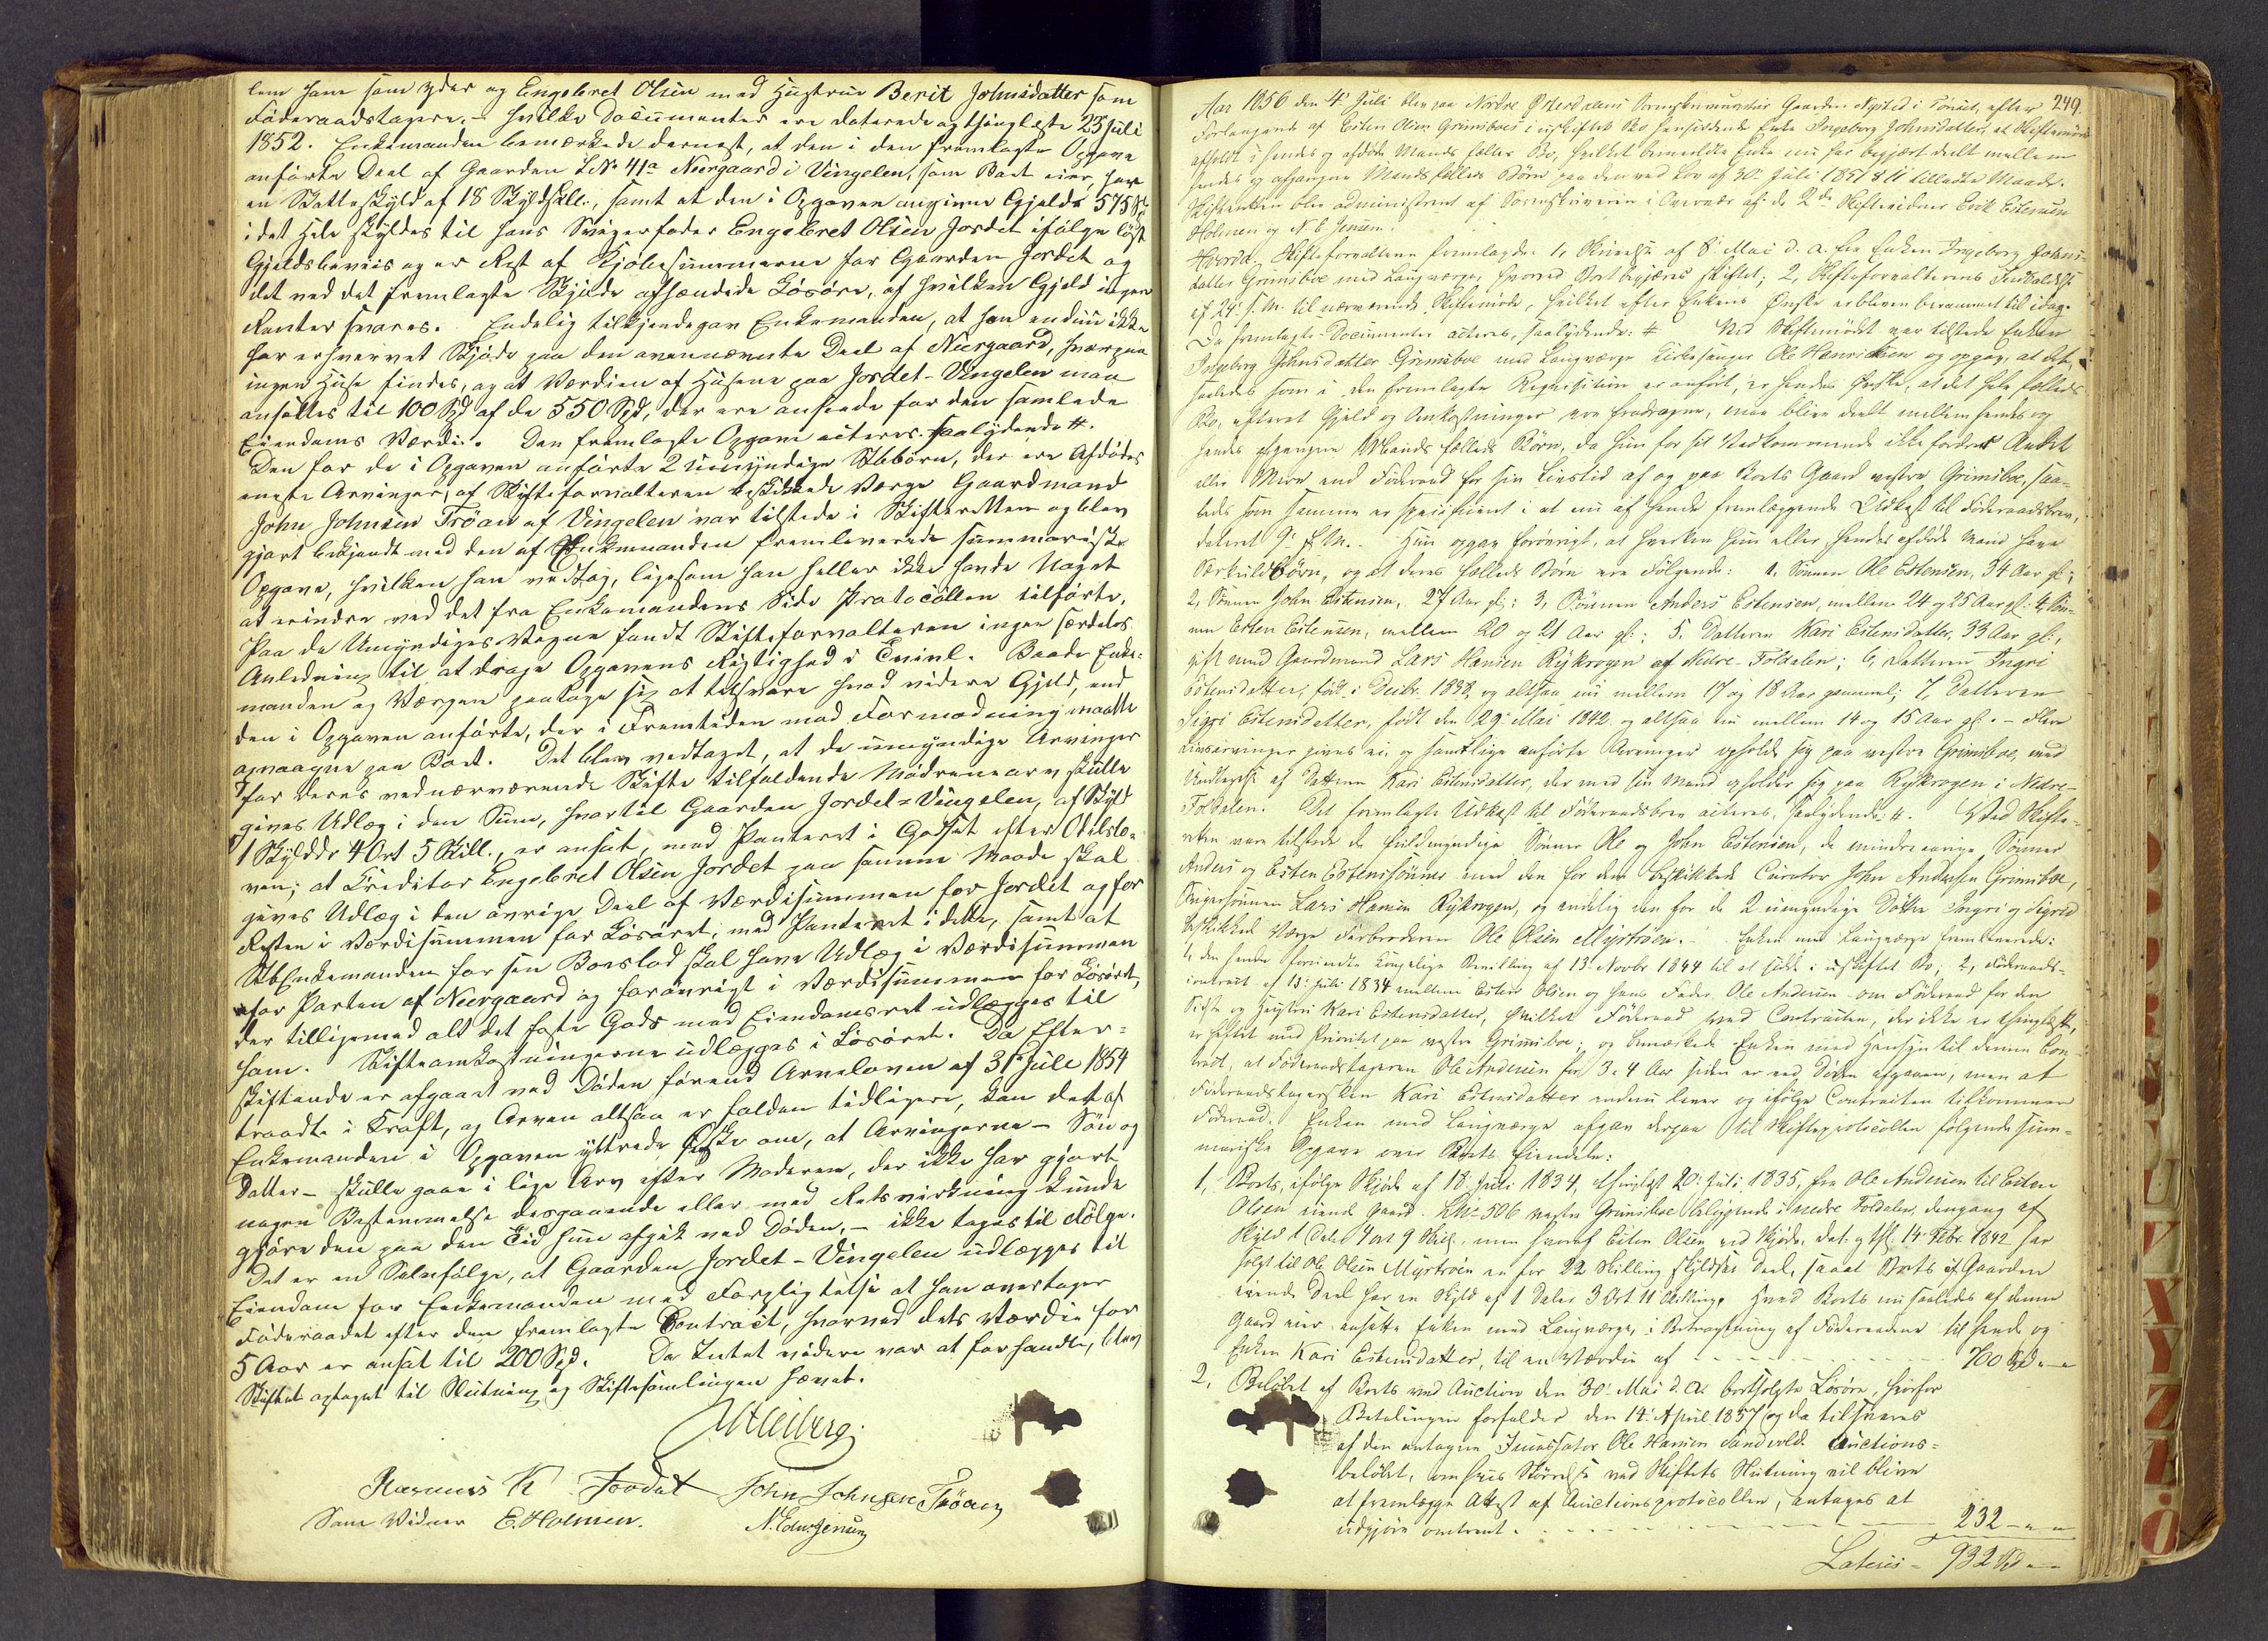 lem ham som yder og Engebret Olsen med Hustrue Berit Johnsdatter som
Föderaadstagere, – hvilke Documenter ere daterede og thinglyste 23 Juli
1852. Enkemanden bemærkede dernæst, at den i den fremlagte Opgave
anförte Deel af Gaarden LNo 41a Neergaard i Vingelen, som Boet eier, har
en Skatteskyld af 18 Skyldskill., samt at den i Opgaven angivne Gjeld 575 Spd
i det Hele skyldes til hans Svigerfader Engebret Olsen Jordet ifölge löst
Gjeldsbeviis og er Rest af Kjöbesummerne for Gaarden Jordet og
det ved det fremlagte Skjöde afhændede Lösöre, af hvilken Gjeld ingen
Renter svares. Endelig tilkjendegav Enkemanden, at han endnu ikke
har erhvervet Skjöde paa den ovennævnte Deel af Neergaard, hvorpaa
ingen Huse findes, og at Værdien af Husene paa Jordet-Vingelen maa
ansættes til 100 Spd af de 550 Spd, der ere ansatte for den samlede
Eiendoms Værdie. Den fremlagte Opgave acteres saalydende #.
Den for de i Opgaven anförte 2 umyndige Stbbörn, der ere Afdödes
eneste Arvinger, af Skifteforvalteren beskikkede Værge Gaardmand
John Johnsen Tröan af Vingelen var tilstede i Skifteretten og blev
gjort bekjendt med den af Enkemanden fremleverede summariske
Opgave, hvilken han vedtog, ligesom han heller ikke havde Noget
at erindre ved det fra Enkemandens Side Protocollen tilförte.
Paa de Umyndiges Vegne fandt Skifteforvalteren ingen særdeles
Anledning til at drage Opgavens Rigtighed i Tvivl. Baade Enke-
manden og Værgen paatoge sig at tilsvare hvad videre Gjeld, end
den i Opgaven anförte, der i Fremtiden mod Formodning maatte
opvaagne paa Boet. Det blev vedtaget, at de umyndige Arvinger
for deres ved nærværende Skifte tilfaldende Mödrenearv skulle
gives Udlæg i den Sum, hvortil Gaarden Jordet-Vingelen, af Skyld
1 Skylddr 4 Ort 5 Skill., er ansat, med Panteret i Godset efter Odelslo-
ven; at Creditor Engebret Olsen Jordet paa samme Maade skal
gives Udlæg i den övrige Deel af Værdisummen for Jordet og for
Resten i Værdisummen for Lösöret, med Panteret i dette, samt at
StbEnkemanden for sin Boeslod skal have Udlæg i Værdisummen
for Parten af Neergaard og forövrigt i Værdisummen for Lösöret,
der tilligemed alt det faste Gods med Eiendomsret udlægges til
ham. Skifteomkostningerne udlægges i Lösöret. Da Efter-
skiftende er afgaaet ved Döden förend Arveloven af 31 Juli 1854
traadte i Kraft, og Arven altsaa er falden tidligere, kan det af
Enkemanden i Opgaven yttrede Önske om, at Arvingerne – Sön og
Datter – skulle gaae i lige Arv efter Moderen, der ikke har gjort
nogen Bestemmelse desgaaende eller med Retsvirkning kunde
gjöre den paa den Tid hun afgik ved Döden, – ikke tages til Fölge.
Det er en Selvfölge, at Gaarden Jordet-Vingelen udlægges til
Eiendom for Enkemanden med Forpligtelse at han overtager
Föderaadet efter den fremlagte Contract, hvorved dets Værdie for
5 Aar er ansat til 200 Spd. Da Intet videre var at forhandle, blev
Skiftet optaget til Slutning og Skiftesamlingen hævet.
Rasmus K Jordet John Johnsen Tröan
Som Vidner E. Holmen. N. Edv. Jensen
249.
Aar 1856 den 4 Juli blev paa Nordre Österdalens Sorenskriverier Gaarden Nysted i Tönset, efter
Forlangende af Esten Olsen Grimsboes i uskiftet Bo hensiddende Enke Ingeborg Johnsdatter, et Skiftemöde
afholdt i hendes og afdöde Mands fælles Bo, hvilket bemeldte Enke nu har begjært deelt mellem
hendes og afgangne Mands fælleds Börn paa den ved Lov af 30 Juli 1851 § 11 tilladte Maade.
Skifteretten blev administreret af Sorenskriveren i Overvær af de 2de Skiftevidner Erik Estensen
Holmen og N. E. Jensen.
Hvorda Skifteforvalteren fremlagde: 1, Skrivelse af 8 Mai d. A. fra Enken Ingeborg Johns-
datter Grimsboe med Laugværge, hvorved Boet begjæres skiftet; 2, Skifteforvalterens Indkaldelse
af 24 f. M. til nærværende Skiftemöde, hvilket efter Enkens Önske er bleven berammet til idag.
De fremlagte Documenter acteres, saalydende: # Ved Skiftemödet var tilstede Enken
Ingeborg Johnsdatter Grimsboe med Laugværge Kirkesanger Ole Henriksen og opgav, at det,
saaledes som i den fremlagte Requisition er anfört, er hendes Önske, at det hele fælleds
Bo, efteret Gjeld og Omkostninger ere fradragne, maa blive deelt mellem hendes og
hendes afgangne Mands fælleds Börn, da hun for sit Vedkommende ikke fordrer Andet
eller Mere end Föderaad for sin Livstid af og paa Boets Gaard vestre Grimsboe, saa-
leds som samme er specificeret i et nu af hende fremlæggende Udkast til Föderaadsbrev,
dateret 9 f. M. Hun opgav forövrigt, at hverken hun eller hendes afdöde Mand have
Særkuldbörn, og at deres fælleds Börn ere Fölgende: 1, Sönnen Ole Estensen, 34 Aar gl.;
2, Sönnen John Estensen, 27 Aar gl.; 3, Sönnen Anders Estensen, mellem 24 og 25 Aar gl.; 4, Sön-
nen Esten Estensen, mellem 20 og 21 Aar gl.; 5, Datteren Kari Estensdatter, 33 Aar gl.,
gift med Gaardmand Lars Hansen Rykrogen af Nedre-Foldalen; 6, Datteren Ingri
Estensdatter, födt i Decbr. 1838, og altsaa nu mellem 17 og 18 Aar gammel; 7, Datteren
Sigri Estensdatter, födt den 29 Mai 1842 og altsaa nu mellem 14 og 15 Aar gl. – Flere
Livsarvinger gives ei, og samtlige anförte Arvinger opholde sig paa vestre Grimsboe, med
Undtagelse af Datteren Kari Estensdatter, der med sin Mand opholder sig paa Rykrogen i Nedre-
Foldalen. Det fremlagte Udkast til Föderaadsbrev acteres, saalydende: #. Ved Skifte-
retten vare tilstede de fuldmyndige Sönner Ole og John Estensen, de mindreaarige Sönner
Anders og Esten Estenssönner med den for dem beskikkede Curator John Andersen Grimsboe,
Svigersönnen Lars Hansen Rykrogen, og endelig den for de 2 umyndige Döttre Ingri og Sigrid
beskikkede Værge Farbroderen Ole Olsen Myrtroen. Enken med Laugværge fremleverede:
1, den hende forundte kongelige Bevilling af 13 Novbr 1844 til at sidde i uskiftet Bo; 2, Föderaads-
contract af 15 Juli 1834 mellem Esten Olsen og hans Fader Ole Andersen om Föderaad for den
Sidste og Hustru Kari Estensdatter, hvilket Föderaad ved Contracten, der ikke er thinglæst,
er heftet med Prioritet paa vestre Grimsboe; og bemærkede Enken med Hensyn til denne Con-
tract, at Föderaadstageren Ole Andersen for 3 á 4 Aar siden er ved Döden afgaaen, men at
Föderaadstagersken Kari Estensdatter endnu lever og ifölge Contracten tilkommer
Föderaad. Enken med Laugværge afgav derpaa til Skifteprotocollen fölgende sum-
mariske Opgave over Boets Eiendele:
1, Boets, ifölge Skjöde af 18 Juli 1834, thinglyst 20 Juli 1835, fra Ole Andersen til Esten
Olsen eiende Gaard LNo 506 vestre Grimsboe beliggende i nedre Foldalen, dengang af
Skyld 1 Daler 4 ort 9 Skill., men hvoraf Esten Olsen ved Skjöde, dat. og thl. 14 Febr. 1842 har
solgt til Ole Olsen Myrtroen en for 22 Skilling skyldsat Deel, saaat Boets af Gaarden
eiende Deel har en Skyld af 1 Daler 3 Ort 11 Skilling. Hvad Boets nu saaledes af denne
Gaard eier ansatte Enken med Laugværge, i Betragtning af Föderaadene til hende og
Enken Kari Estensdatter, til en Værdie af - - - - - - 700 Spd - -
2, Belöbet af Boets ved Auction den 30 Mai d. A. bortsolgte Lösöre, hvorfor
Betalingen forfalder den 14 April 1857 og da tilsvares
af den antagne Incassator Ole Hansen Sandvold. Auctions-
belöbet, om hvis Störrelse ved Skiftets Slutning vil blive
at fremlægge Attest af Auctionsprotocollen, antages at
udgjöre omtrent - - - - - - 232 - - -
Lateris - 932 Spd - -